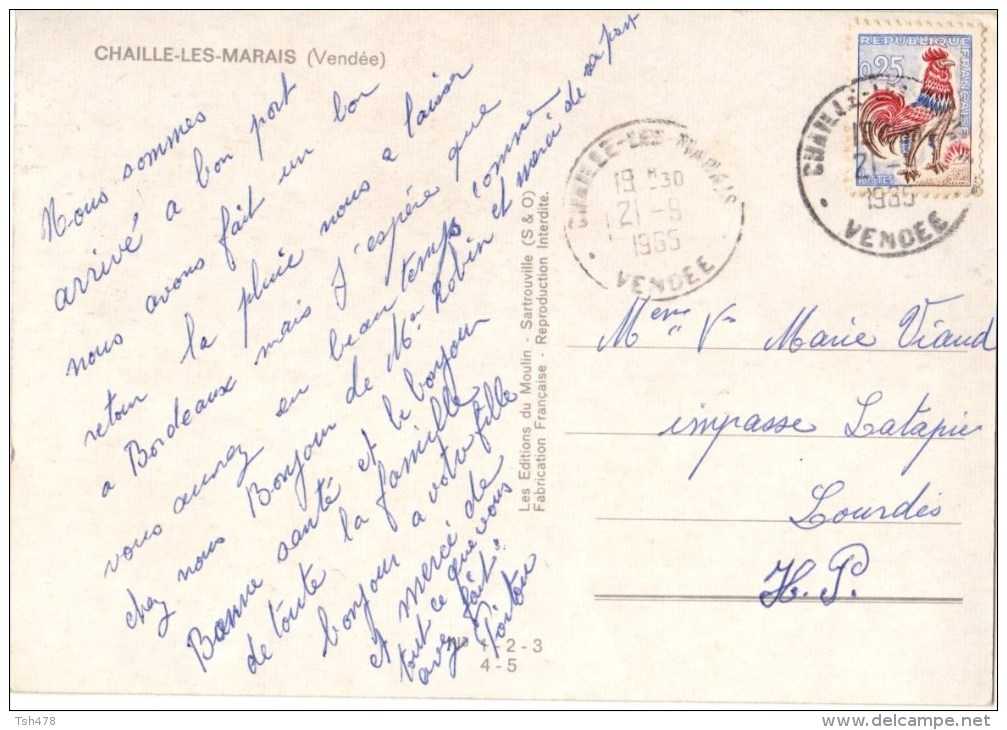 CHAILLE-LES-MARAIS (Vendée)
Nous sommes
arrivé a bon port
nous avons fait un bon
retour la pluie nous a laisser
a Bordeaux mais J'espère que
vous aurez en beau temps comme
chez nous Bonjour de Mr Robin et merci de sa part
Bonne santé et le bonjour
de toute la famille
bonjour a votre fille
et merci de
tout ce que vous
avez fait.
Poitou
No 1-2-3
4-5
Les Editions du Moulin - Sartrouville (S & O)
Fabrication Française - Reproduction Interdite.
CHAILLE-LES-MARAIS
19 H 30
21-9
1965
VENDEE
REPUBLIQUE FRANÇAISE
0,25
POSTES
CHAILLE-LES
21-
1965
VENDEE
Meme Vve Marie Viaud
impasse Latapie
Lourdes
H. P.
Tsh478
www.delcampe.net